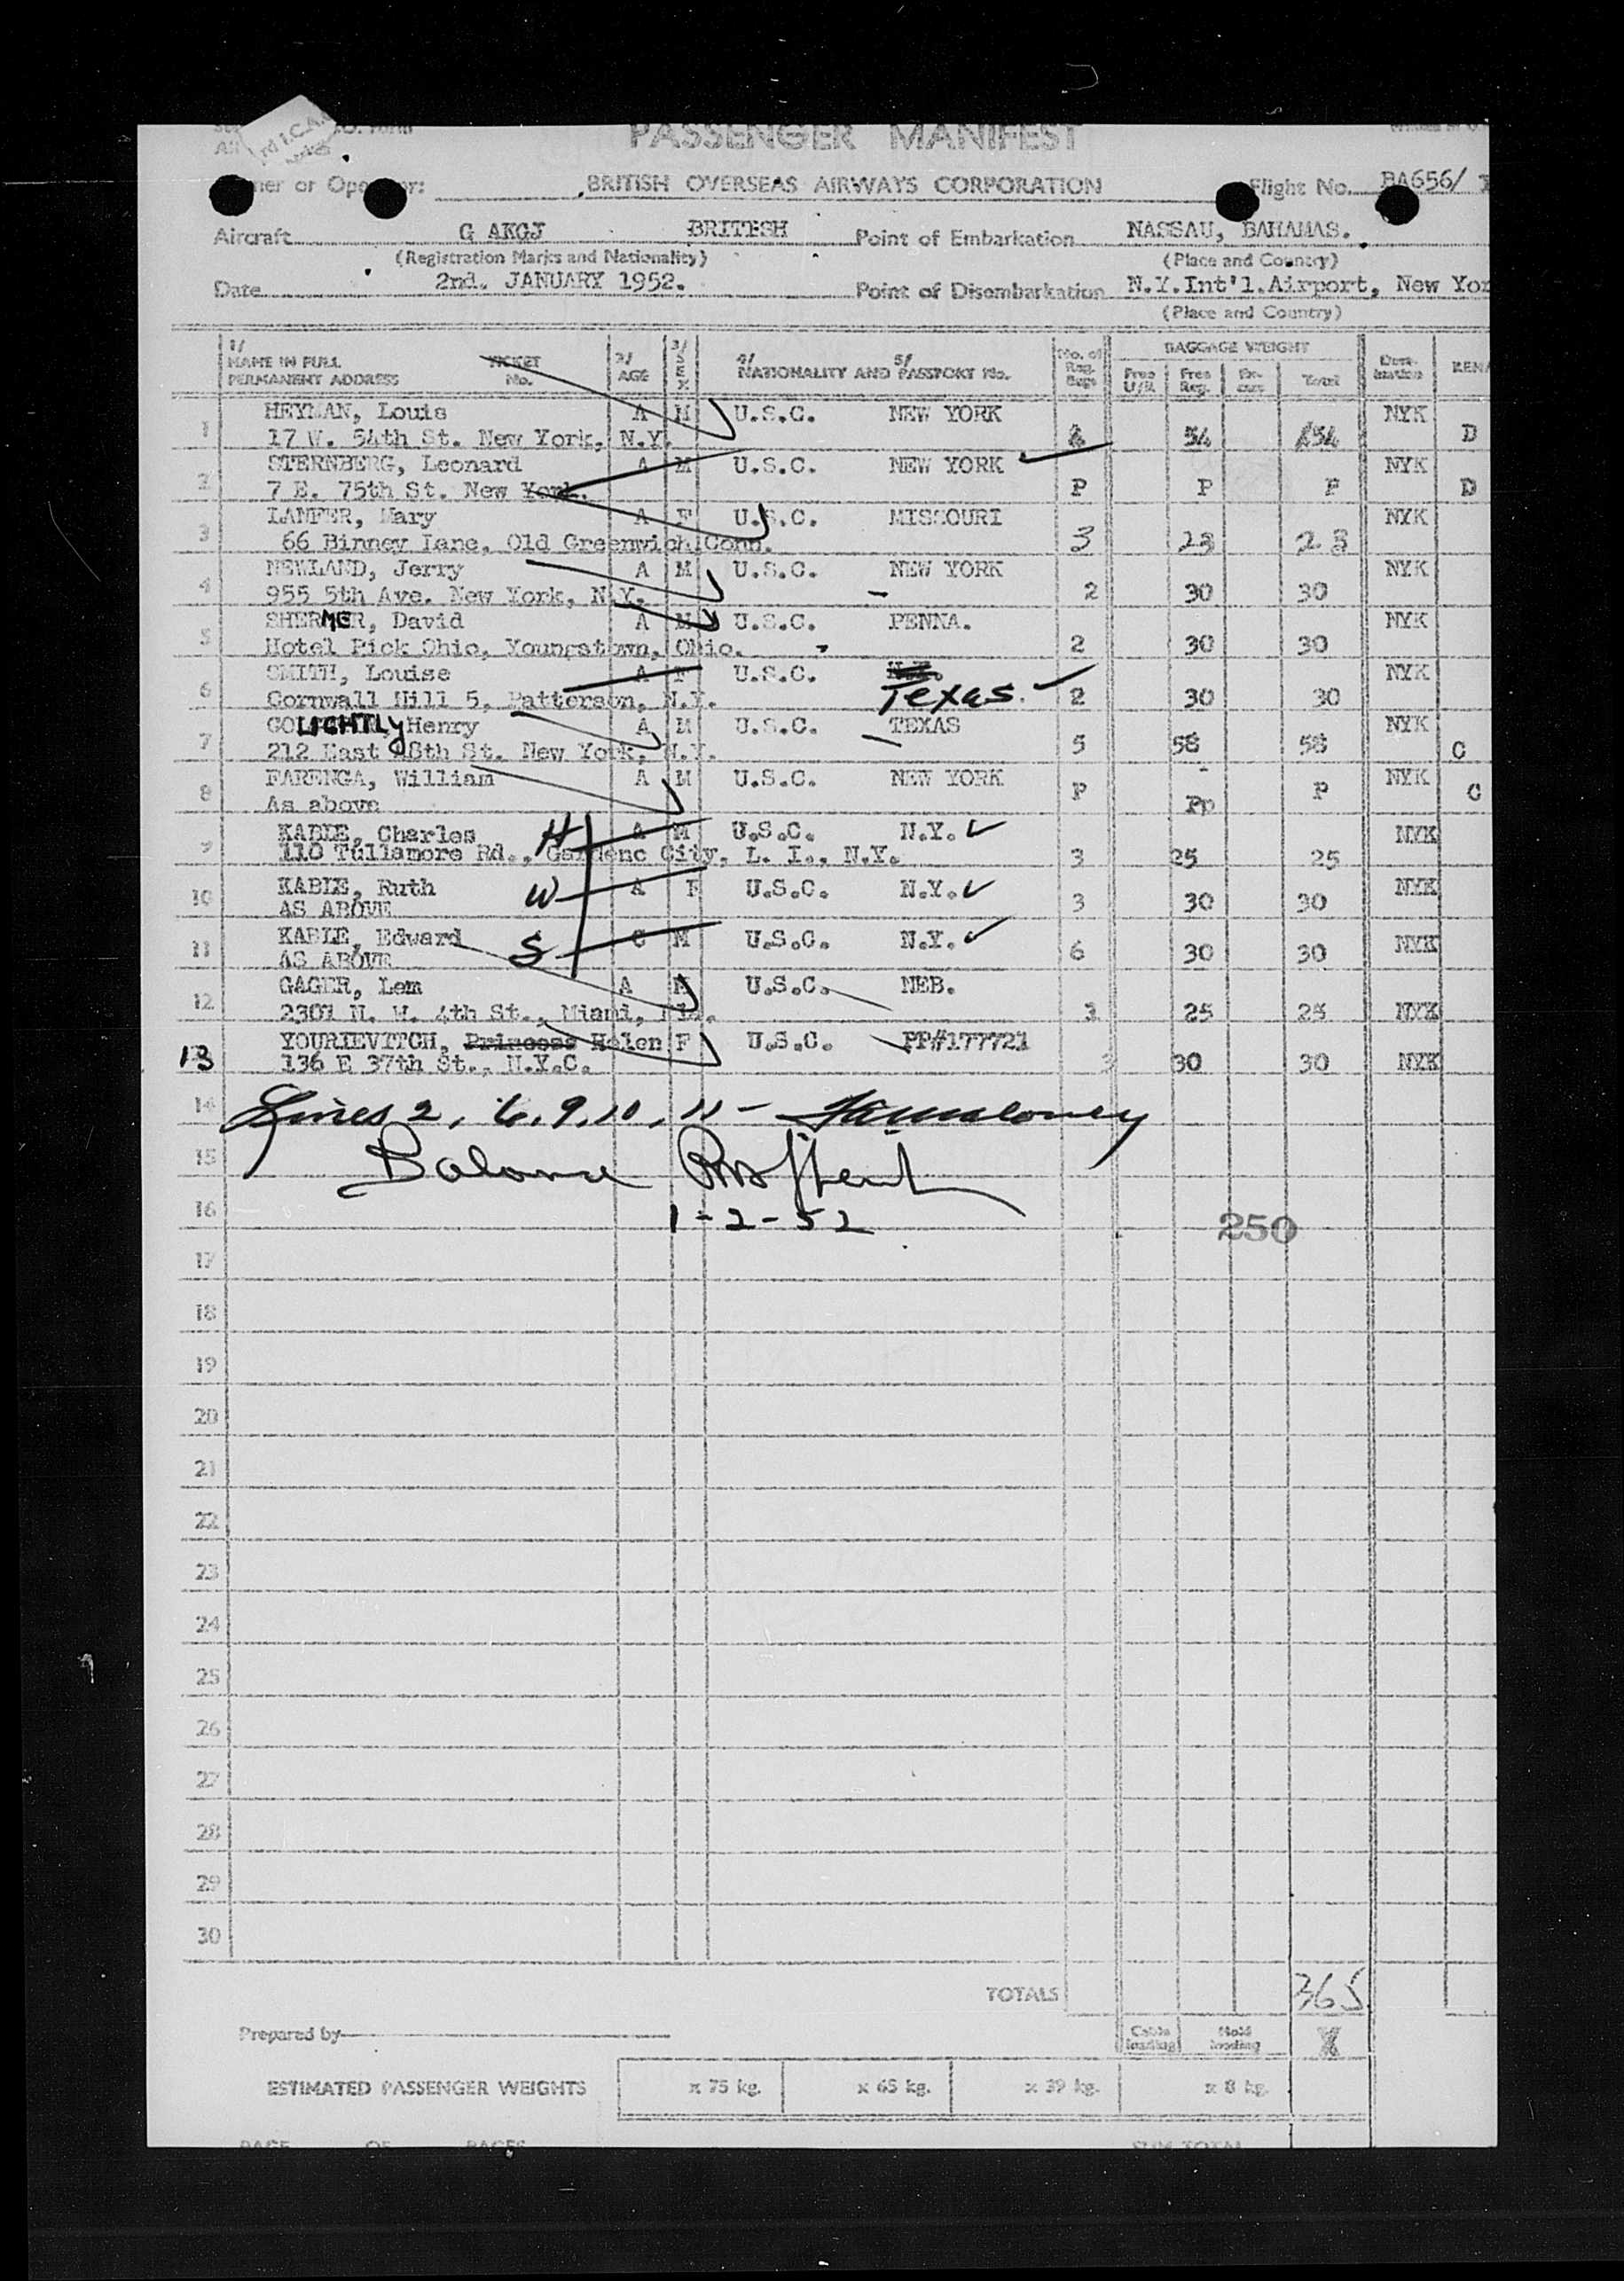 PASSENGER MANIFEST
BRITISH OVERSEAS AIRWAYS CORPORATION Flight No. BA656/
Aircraft G AKGJ BRITISH Point of Embarkation NASSAU, BAHAMAS.
(Registration Marks and Nationality) (Place and Country)
Date 2nd. JANUARY 1952. Point of Disembarkation N.Y.Int'l.Airport, New Yor
(Place and Country)
1/ NAME IN FULL PERMANENT ADDRESS TICKET No. 2/ AGE 3/ SEX 4/ 5/ NATIONALITY AND PASSPORT No. No. of Reg. Bags BAGGAGE WEIGHT Free U/R Free Reg. Ex-cess Total Dest-ination
1 HEYMAN, Louis A M U.S.C. NEW YORK NYK
17 W. 54th St. New York, N.Y. 54 54 D
2 STERNBERG, Leonard A M U.S.C. NEW YORK NYK
7 E. 75th St. New York. P P P D
3 LAMFER, Mary A F U.S.C. MISSOURI NYK
66 Binney Lane, Old Greenwich Conn. 3 23 23
4 NEWLAND, Jerry A M U.S.C. NEW YORK NYK
955 5th Ave. New York, N.Y. 2 30 30
5 SHERMER, David A M U.S.C. PENNA. NYK
Hotel Pick Ohio, Youngstown, Ohio. 2 30 30
6 SMITH, Louise A F U.S.C. NYK
Cornwall Hill 5, Patterson, N.Y. Texas. 2 30 30
7 GOLIGHTLY Henry A M U.S.C. TEXAS NYK
212 East 48th St. New York, N.Y. 5 58 58 C
8 FARENGA, William A M U.S.C. NEW YORK NYK
As above P P P C
9 KABLE, Charles H A M U.S.C. N.Y. NYK
110 Tullamore Rd., Gardenc City, L. I., N.Y. 3 25 25
10 KABLE, Ruth W A F U.S.C. N.Y. NYK
AS ABOVE 3 30 30
11 KABLE, Edward S C M U.S.C. N.Y. NYK
AS ABOVE 6 30 30
12 GAGER, Lem A M U.S.C. NEB.
2301 N. W. 4th St., Miami, Fla. 25 25 NYK
13 YOURIEVITCH, Princess Helen F U.S.C. PP#177721
136 E 37th St., N.Y.C. 3 30 30 NYK
14 Lines 2, 6, 9, 10, 11 -
15 Balance
16 1-2-52 250
17
18
19
20
21
22
23
24
25
26
27
28
29
30
TOTALS 365
Prepared by Cabin loading Hold loading
ESTIMATED PASSENGER WEIGHTS x 75 kg. x 65 kg. x 39 kg. x 8 kg.
PAGE OF PAGES SUM TOTAL